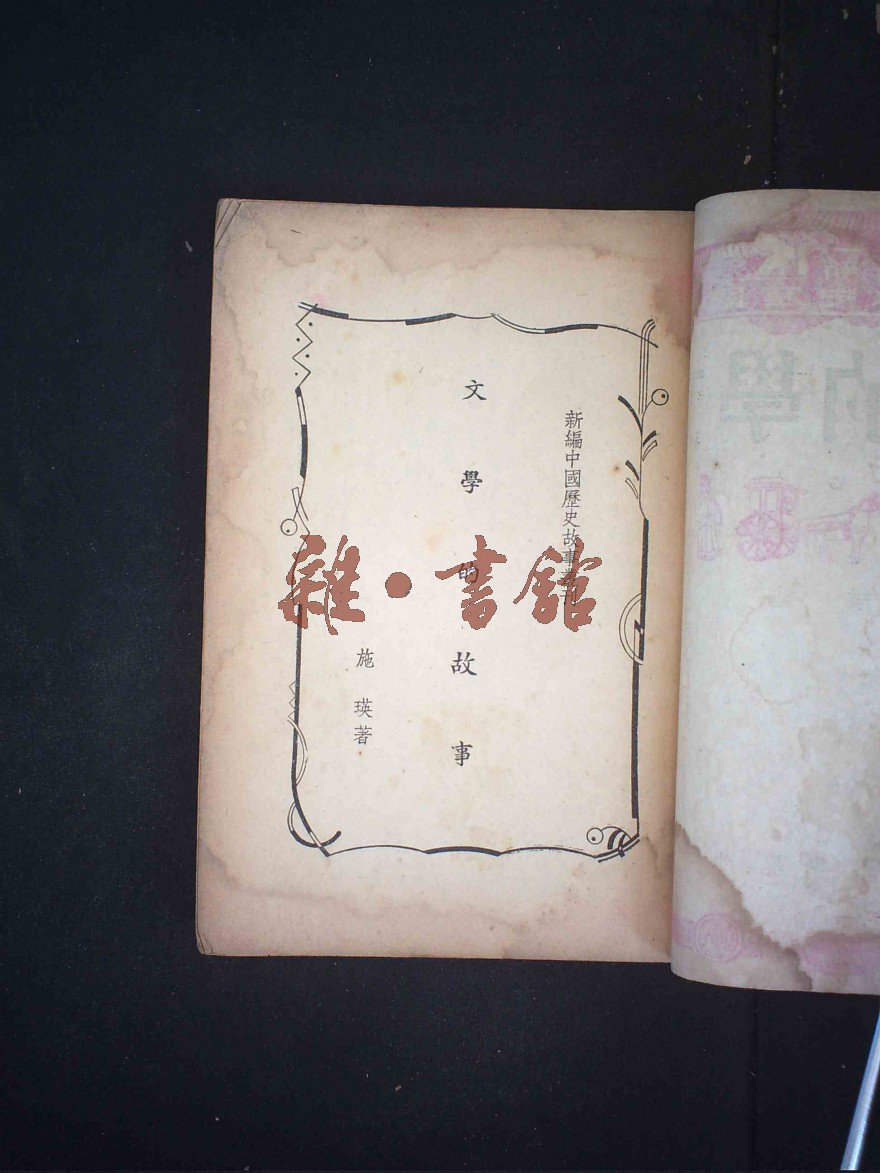 新編中國歷史故事叢刊
文學的故事
施瑛著
雜·書館